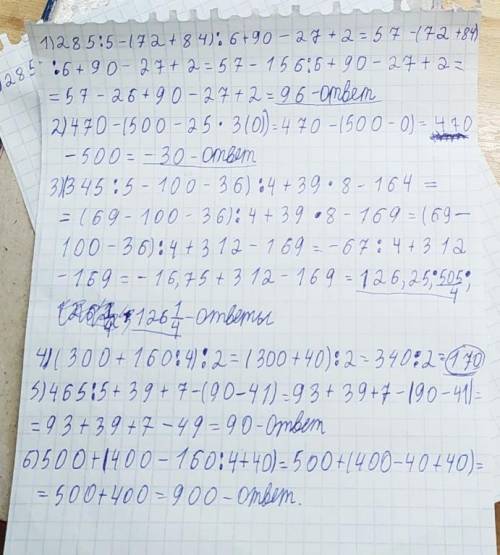 1)285:5-(72+84):6+90-27+2=57-(72+84)
:6+90-27+2=57-156:6+90-27+2=
=57-26+90-27+2=96-ответ
2)470-(500-25·3(0))=470-(500-0)=470
-500=-30-ответ
3)(345:5-100-36):4+39·8-164=
=(69-100-36):4+39·8-169=(69-
100-36):4+312-169=-67:4+312
-169=-16,75+312-169=126,25; 505/4;
126 1/4-ответы
4)(300+160:4):2=(300+40):2=340:2=170
5)465:5+39+7-(90-41)=93+39+7-(90-41)=
=93+39+7-49=90-ответ
6)500+(400-160:4+40)=500+(400-40+40)=
=500+400=900-ответ.